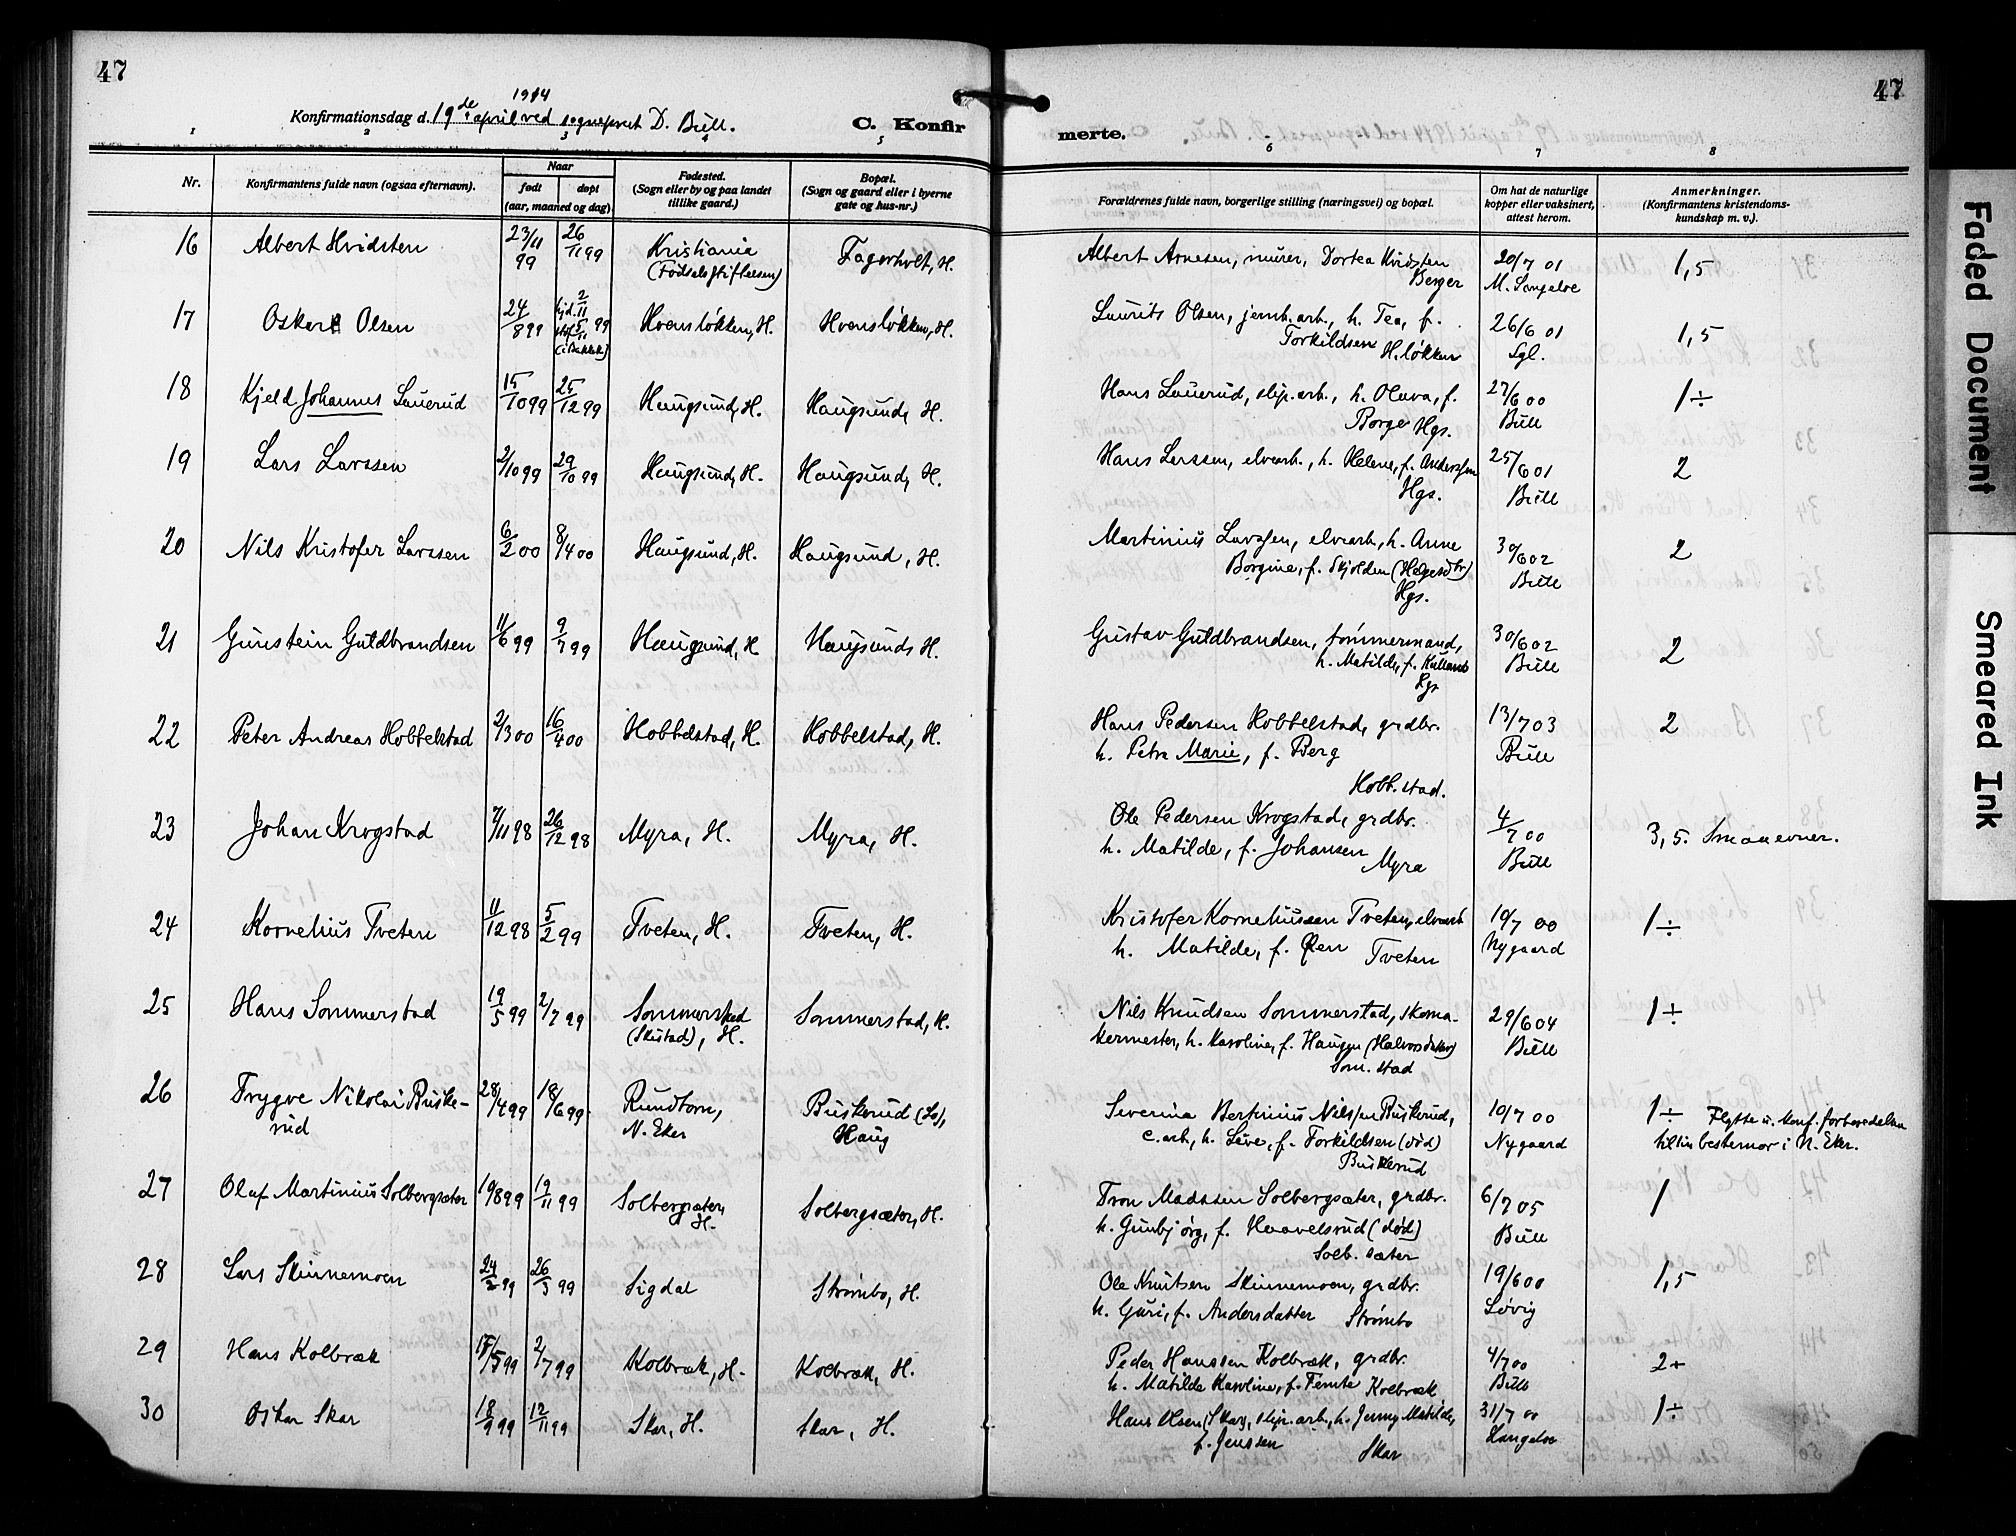 47
47
1914
Konfirmationsdag d. 19de april ved sogneprest D. Bull.
C. Konfirmerte.
1 2 3 4 5 6 7 8
Nr.
Konfirmantens fulde navn (ogsaa efternavn).
Naar
født
døpt
(aar, maaned og dag).
Fødested.
(Sogn eller by og paa landet
tillike gaard.)
Bopæl.
(Sogn og gaard eller i byerne
gate og hus-nr.)
Forældrenes fulde navn, borgerlige stilling (næringsvei) og bopæl.
Om hat de naturlige
kopper eller vaksinert,
attest herom.
Anmerkninger.
(Konfirmantens kristendoms-
kundskap m. v.).
16 Albert Hvidsten 23/11 99 26/11 99 Kristiania (Fødselsstiftelsen) Fagerholt, H.
Albert Arnesen, murer, Dortea Hvidsten Berger 20/7 01 M. Langeloe 1,5
17 Oskar Olsen 24/8 99 hjd. 2/11 stf. 5/11 99 (i Bakkek) Hvensløkken, H. Hvensløkken, H.
Laurits Olsen, jernb.arb., h. Tea, f. Torkildsen H.løkken 26/6 01 Lgl. 1,5
18 Kjeld Johannes Lauerud 15/10 99 25/12 99 Haugsund, H. Haugsund, H.
Hans Lauerud, slip.arb., h. Oluva, f. Borge Hgs. 27/6 00 Bull 1÷
19 Lars Larssen 2/10 99 29/10 99 Haugsund, H. Haugsund, H.
Hans Larssen, elvearb., h. Helene, f. Anderssen Hgs. 25/6 01 Bull 2
20 Nils Kristofer Larssen 6/2 00 8/4 00 Haugsund, H. Haugsund, H.
Martinius Larssen, elvearb., h. Anne Borgine, f. Skjolden (Helgesdtr) Hgs. 30/6 02 Bull 2
21 Gunstein Guldbrandsen 11/6 99 9/7 99 Haugsund, H Haugsund, H.
Gustav Guldbrandsen, tømmermand, h. Matilde, f. Kulland Hgs 30/6 02 Bull 2
22 Peter Andreas Hobbelstad 2/3 00 16/4 00 Hobbelstad, H. Hobbelstad, H.
Hans Pedersen Hobbelstad, grdbr. h. Petra Marie, f. Berg Hobb.stad. 13/7 03 Bull 2
23 Johan Krogstad 7/11 98 26/12 98 Myra, H. Myra, H.
Ole Pedersen Krogstad, grdbr. h. Matilde, f. Johansen Myra 4/7 00 Bull 3,5. Smaa evner.
24 Kornelius Tveten 11/12 98 5/2 99 Tveten, H. Tveten, H.
Kristofer Korneliussen Tveten, elvearb h. Matilde, f. Øen Tveten 10/7 00 Nygaard 1÷
25 Hans Sommerstad 19/5 99 2/7 99 Sommerstad (Skistad), H. Sommerstad, H.
Nils Knudsen Sommerstad, skoma-
kermester, h. Karoline, f. Haugen (Halvorsdatter) Som.stad 29/6 04 Bull 1÷
26 Trygve Nikolai Buske-
rud 28/4 99 18/6 99 Rundtom, N. Eker Buskerud (Ls), Haug
Severina Bertinius Nilssen Buskerud, e.arb., h. Live, f. Torkildsen (død) Buskerud 10/7 00 Nygaard 1÷ Flytte u. konf. forberedelsen
til sin bestemor i N. Eker.
27 Olaf Martinius Solbergsæter 10/8 99 19/11 99 Solbergsæter, H. Solbergsæter, H.
Tron Madssen Solbergsæter, grdbr. h. Gunbjørg, f. Haavelsrud (død) Solb.sæter 6/7 05 Bull 1
28 Lars Skinnemoen 24/2 99 26/3 99 Sigdal Strømbo, H.
Ole Knutsen Skinnemoen, grdbr. h. Guri, f. Andersdatter Strømbo 19/6 00 Løvig 1,5
29 Hans Kolbræk 15/5 99 2/7 99 Kolbræk, H. Kolbræk, H.
Peder Hanssen Kolbræk, grdbr. h. Matilde Karoline, f. Temte Kolbræk 4/7 00 Bull 2+
30 Oskar Skar 18/9 99 12/11 99 Skar, H. Skar, H.
Hans Olsen (Skar), slip.arb., h. Jenny Matilde, f. Jenssen Skar 31/7 00 Langeloe 1÷
Faded Document
Smeared Ink